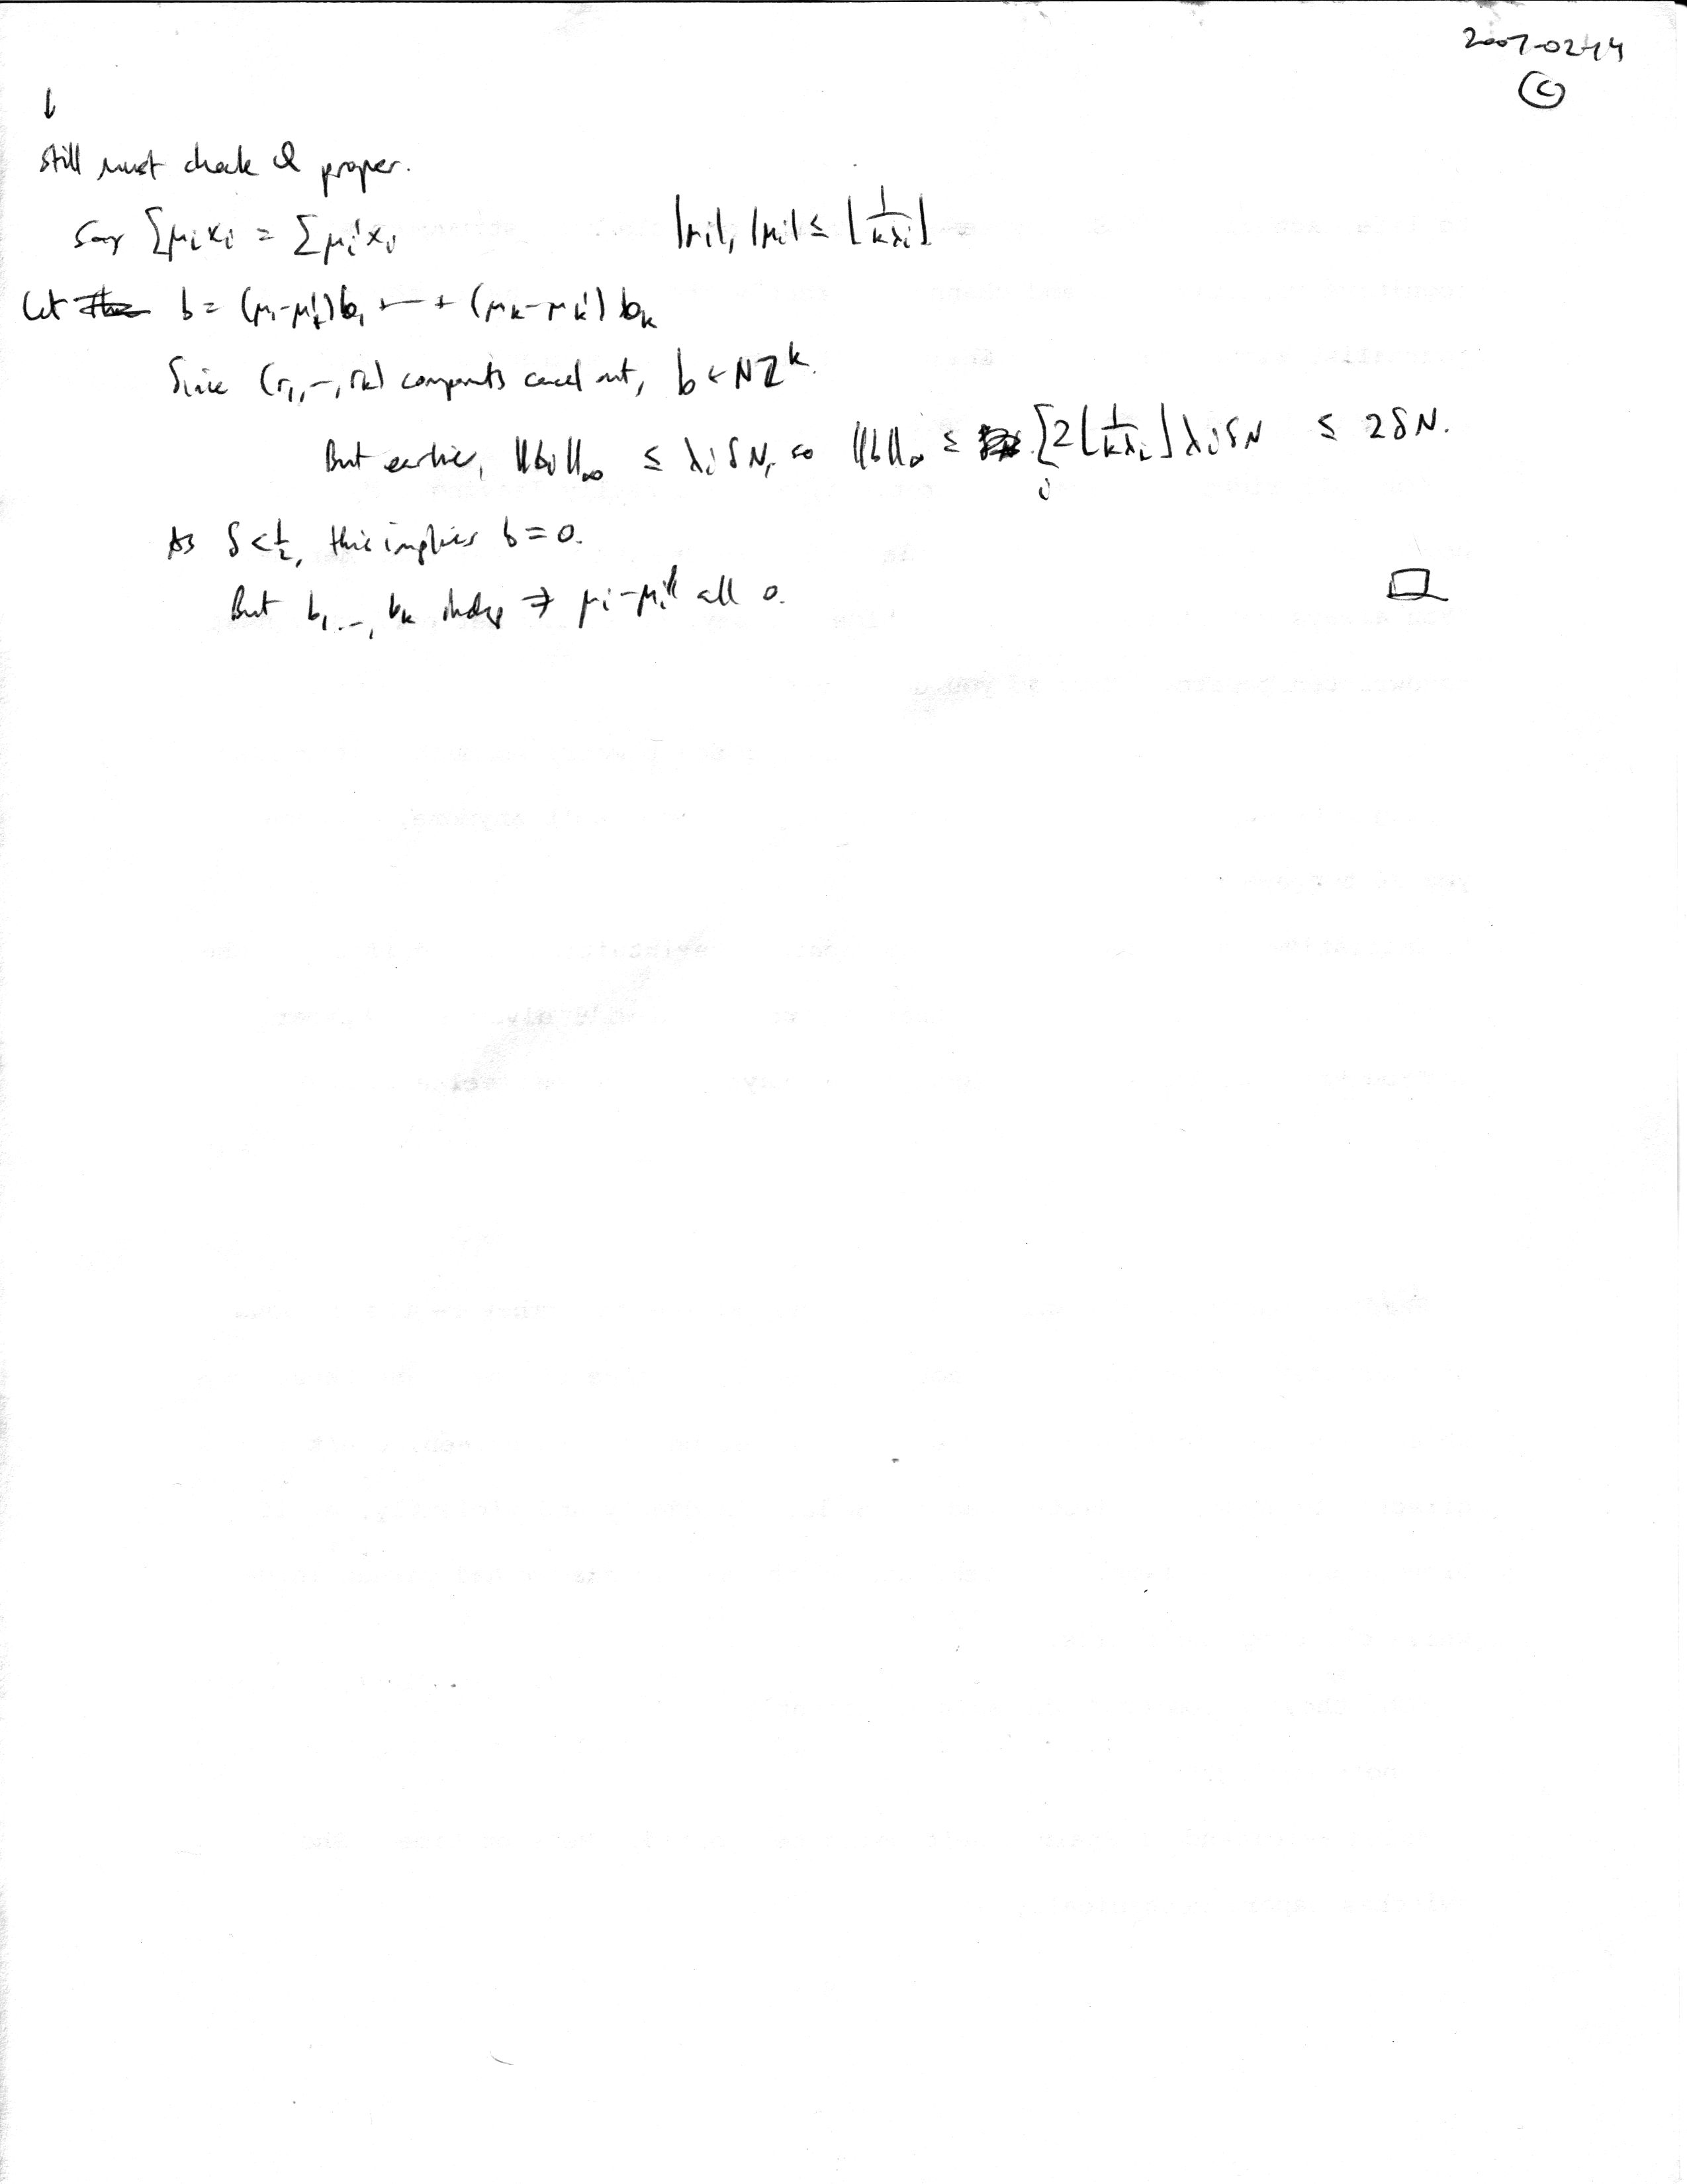 2007-02-14
C
↓
Still must check Q proper.
Say ∑μᵢxᵢ = ∑μᵢ'xᵢ |μᵢ|, |μᵢ'| ≤ ⌊1/(kλᵢ)⌋
Let b = (μ₁-μ₁')b₁ + — + (μₖ-μₖ')bₖ
Since (r₁,–,rₖ) components cancel out, b ∈ Nℤᵏ.
But earlier, ||bᵢ||∞ ≤ λᵢδN, so ||b||∞ ≤ ∑ᵢ 2⌊1/(kλᵢ)⌋λᵢδN ≤ 2δN.
As δ < 1/2, this implies b = 0.
But b₁, –, bₖ indep ⇒ μᵢ-μᵢ' all 0. □